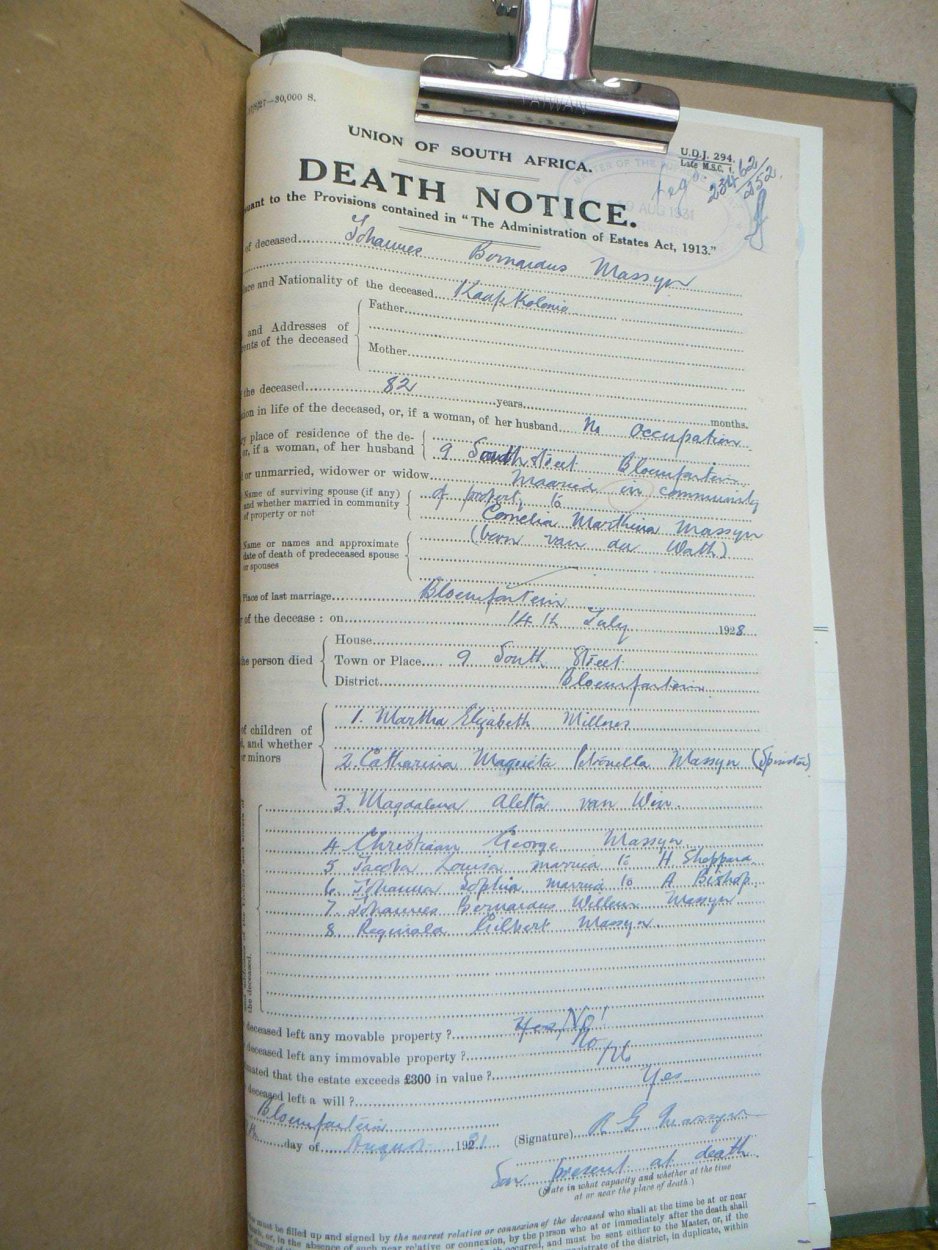 TAIWAN
27—30,000 S.
UNION OF SOUTH AFRICA.
U.D.J. 294.
Late M.S.C. 1.
DEATH NOTICE.
AUG 1931
uant to the Provisions contained in "The Administration of Estates Act, 1913."
of deceased Johannes Bernardus Massyn
ace and Nationality of the deceased Kaap Kolonie
and Addresses of
ents of the deceased
Father
Mother
the deceased 82 years months.
ion in life of the deceased, or, if a woman, of her husband No Occupation
y place of residence of the de-
or, if a woman, of her husband
9 South Street Bloemfontein
or unmarried, widower or widow Married in community
Name of surviving spouse (if any)
and whether married in community
of property or not
of property to
Cornelia Marthina Massyn
(born van der Wath)
Name or names and approximate
date of death of predeceased spouse
or spouses
Place of last marriage Bloemfontein
of the decease : on 14th July 1928
he person died
House
Town or Place 9 South Street
District Bloemfontein
of children of
d, and whether
or minors
1. Martha Elizabeth
2. Catharina Petronella Massyn (Spinster)
3. Magdalena Aletta van
4 Christiaan George Massyn
5 Jacoba Louisa married to H Sheppard
6. Johanna Sophia married to A Bishop
7. Johannes Bernardus Willem Massyn
8. Reginald Gilbert Massyn
the deceased.
deceased left any movable property ? Yes No!
deceased left any immovable property ? No
mated that the estate exceeds £300 in value ? No
deceased left a will ? Yes
Bloemfontein
day of August 1931
(Signature) R G Massyn
Son present at death
(State in what capacity and whether at the time
at or near the place of death.)
must be filled up and signed by the nearest relative or connexion of the deceased who shall at the time be at or near
or, in the absence of such near relative or connexion, by the person who at or immediately after the death shall
occurred, and must be sent either to the Master, or, if the
magistrate of the district, in duplicate, within